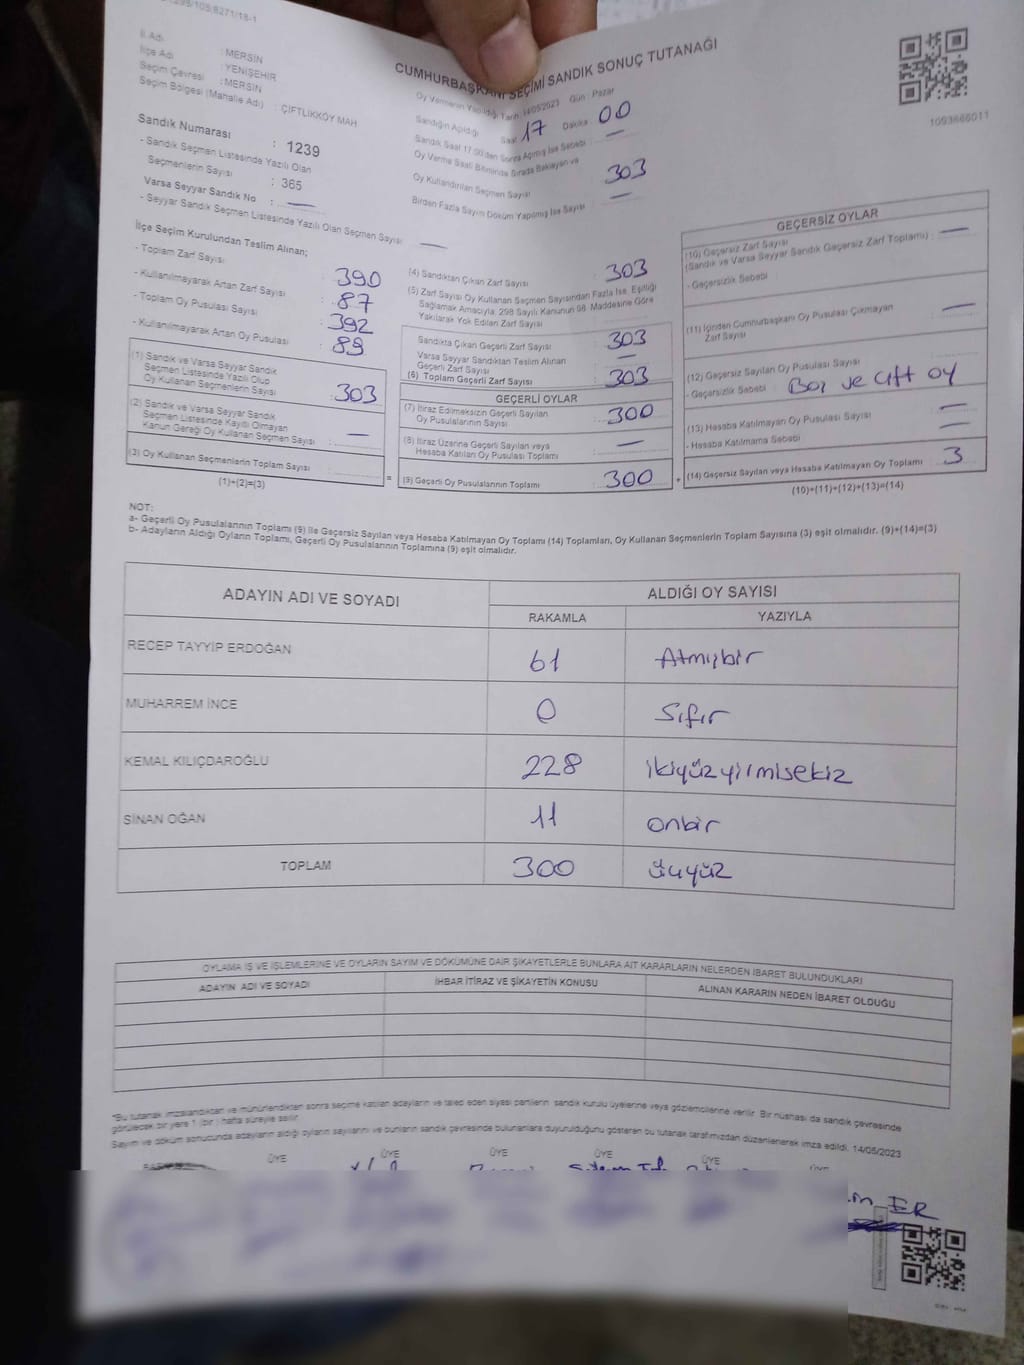 298/108/8271/18-1
İl Adı : MERSİN
İlçe Adı : YENİŞEHİR
Seçim Çevresi : MERSİN
Seçim Bölgesi (Mahalle Adı) : ÇİFTLİKKÖY MAH
Sandık Numarası : 1239
- Sandık Seçmen Listesinde Yazılı Olan
Seçmenlerin Sayısı : 365
Varsa Seyyar Sandık No : —
- Seyyar Sandık Seçmen Listesinde Yazılı Olan Seçmen Sayısı —
CUMHURBAŞKANI SEÇİMİ SANDIK SONUÇ TUTANAĞI
Oy Vermenin Yapıldığı Tarih: 14/05/2023 Gün : Pazar
Sandığın Açıldığı Saat 17 Dakika 00
Sandık Saat 17.00'den Sonra Açılmış İse Sebebi : —
Oy Verme Saati Bitiminde Sırada Bekleyen ve
Oy Kullandırılan Seçmen Sayısı 303
Birden Fazla Sayım Döküm Yapılmış İse Sayısı : —
1093666011
İlçe Seçim Kurulundan Teslim Alınan;
- Toplam Zarf Sayısı : 390
- Kullanılmayarak Artan Zarf Sayısı : 87
- Toplam Oy Pusulası Sayısı : 392
- Kullanılmayarak Artan Oy Pusulası : 89
(1) Sandık ve Varsa Seyyar Sandık
Seçmen Listesinde Yazılı Olup
Oy Kullanan Seçmenlerin Sayısı : 303
(2) Sandık ve Varsa Seyyar Sandık
Seçmen Listesinde Kayıtlı Olmayan
Kanun Gereği Oy Kullanan Seçmen Sayısı : —
(3) Oy Kullanan Seçmenlerin Toplam Sayısı :
(1)+(2)=(3)
(4) Sandıktan Çıkan Zarf Sayısı : 303
(5) Zarf Sayısı Oy Kullanan Seçmen Sayısından Fazla İse, Eşitliği
Sağlamak Amacıyla; 298 Sayılı Kanunun 98. Maddesine Göre
Yakılarak Yok Edilen Zarf Sayısı :
Sandıkta Çıkan Geçerli Zarf Sayısı : 303
Varsa Seyyar Sandıktan Teslim Alınan
Geçerli Zarf Sayısı : —
(6) Toplam Geçerli Zarf Sayısı : 303
GEÇERLİ OYLAR
(7) İtiraz Edilmeksizin Geçerli Sayılan
Oy Pusulalarının Sayısı : 300
(8) İtiraz Üzerine Geçerli Sayılan veya
Hesaba Katılan Oy Pusulası Toplamı : —
(9) Geçerli Oy Pusulalarının Toplamı : 300
GEÇERSİZ OYLAR
(10) Geçersiz Zarf Sayısı
(Sandık ve Varsa Seyyar Sandık Geçersiz Zarf Toplamı) : —
- Geçersizlik Sebebi :
(11) İçinden Cumhurbaşkanı Oy Pusulası Çıkmayan
Zarf Sayısı : —
(12) Geçersiz Sayılan Oy Pusulası Sayısı :
- Geçersizlik Sebebi : Boş ve çift oy
(13) Hesaba Katılmayan Oy Pusulası Sayısı : —
- Hesaba Katılmama Sebebi : —
(14) Geçersiz Sayılan veya Hesaba Katılmayan Oy Toplamı : 3
(10)+(11)+(12)+(13)=(14)
NOT:
a- Geçerli Oy Pusulalarının Toplamı (9) ile Geçersiz Sayılan veya Hesaba Katılmayan Oy Toplamı (14) Toplamları, Oy Kullanan Seçmenlerin Toplam Sayısına (3) eşit olmalıdır. (9)+(14)=(3)
b- Adayların Aldığı Oyların Toplamı, Geçerli Oy Pusulalarının Toplamına (9) eşit olmalıdır.
ADAYIN ADI VE SOYADI ALDIĞI OY SAYISI
RAKAMLA YAZIYLA
RECEP TAYYİP ERDOĞAN 61 Atmışbir
MUHARREM İNCE 0 Sıfır
KEMAL KILIÇDAROĞLU 228 ikiyüzyirmisekiz
SİNAN OĞAN 11 onbir
TOPLAM 300 üçyüz
OYLAMA İŞ VE İŞLEMLERİNE VE OYLARIN SAYIM VE DÖKÜMÜNE DAİR ŞİKAYETLERLE BUNLARA AİT KARARLARIN NELERDEN İBARET BULUNDUKLARI
ADAYIN ADI VE SOYADI İHBAR İTİRAZ VE ŞİKAYETİN KONUSU ALINAN KARARIN NEDEN İBARET OLDUĞU
*Bu tutanak imzalandıktan ve mühürlendikten sonra seçime katılan adayların ve talep eden siyasi partilerin sandık kurulu üyelerine veya gözlemcilerine verilir. Bir nüshası da sandık çevresinde
görülecek bir yere 1 (bir) hafta süreyle asılır.
Sayım ve döküm sonucunda adayların aldığı oyların sayılarını ve bunların sandık çevresinde bulunanlara duyurulduğunu gösteren bu tutanak tarafımızdan düzenlenerek imza edildi. 14/05/2023
ÜYE ÜYE ÜYE ÜYE ÜYE ÜYE
ER